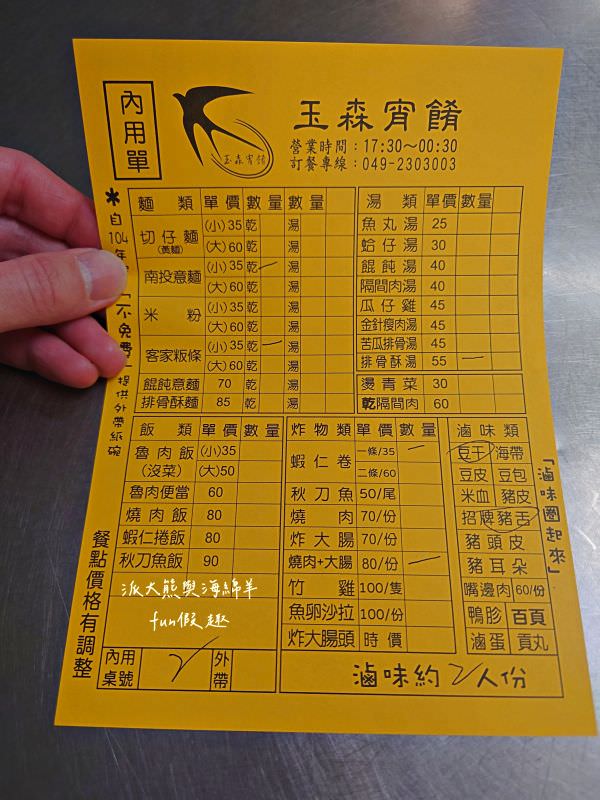 內用單
玉森宵餚
玉森宵餚
營業時間：17:30～00:30
訂餐專線：049-2303003
＊自104年
「不免費」提供外帶紙碗
麵類 單價 數量 數量
切仔麵(黃麵) (小)35 乾 湯
(大)60 乾 湯
南投意麵 (小)35 乾 一 湯
(大)60 乾 湯
米粉 (小)35 乾 湯
(大)60 乾 湯
客家粄條 (小)35 乾 一 湯
(大)60 乾 湯
餛飩意麵 70 乾 湯
排骨酥麵 85 乾 湯
湯類 單價 數量
魚丸湯 25
蛤仔湯 30
餛飩湯 40
隔間肉湯 40
瓜仔雞 45
金針瘦肉湯 45
苦瓜排骨湯 45
排骨酥湯 55 一
燙青菜 30
乾隔間肉 60
飯類 單價 數量
魯肉飯(沒菜) (小)35
(大)50
魯肉便當 60
燒肉飯 80
蝦仁捲飯 80
秋刀魚飯 90
派大熊與海綿羊
fun假趣
內用桌號 2 外帶
炸物類 單價 數量
蝦仁卷 一條/35 一
二條/60
秋刀魚 50/尾
燒肉 70/份
炸大腸 70/份
燒肉+大腸 80/份 一
竹雞 100/隻
魚卵沙拉 100/份
炸大腸頭 時價
滷味類
豆干 海帶
豆皮 豆包
米血 豬皮
招牌豬舌
豬頭皮
豬耳朵
嘴邊肉 60/份
鴨胗 百頁
滷蛋 貢丸
滷味約2人份
「滷味圈起來」
餐點價格有調整